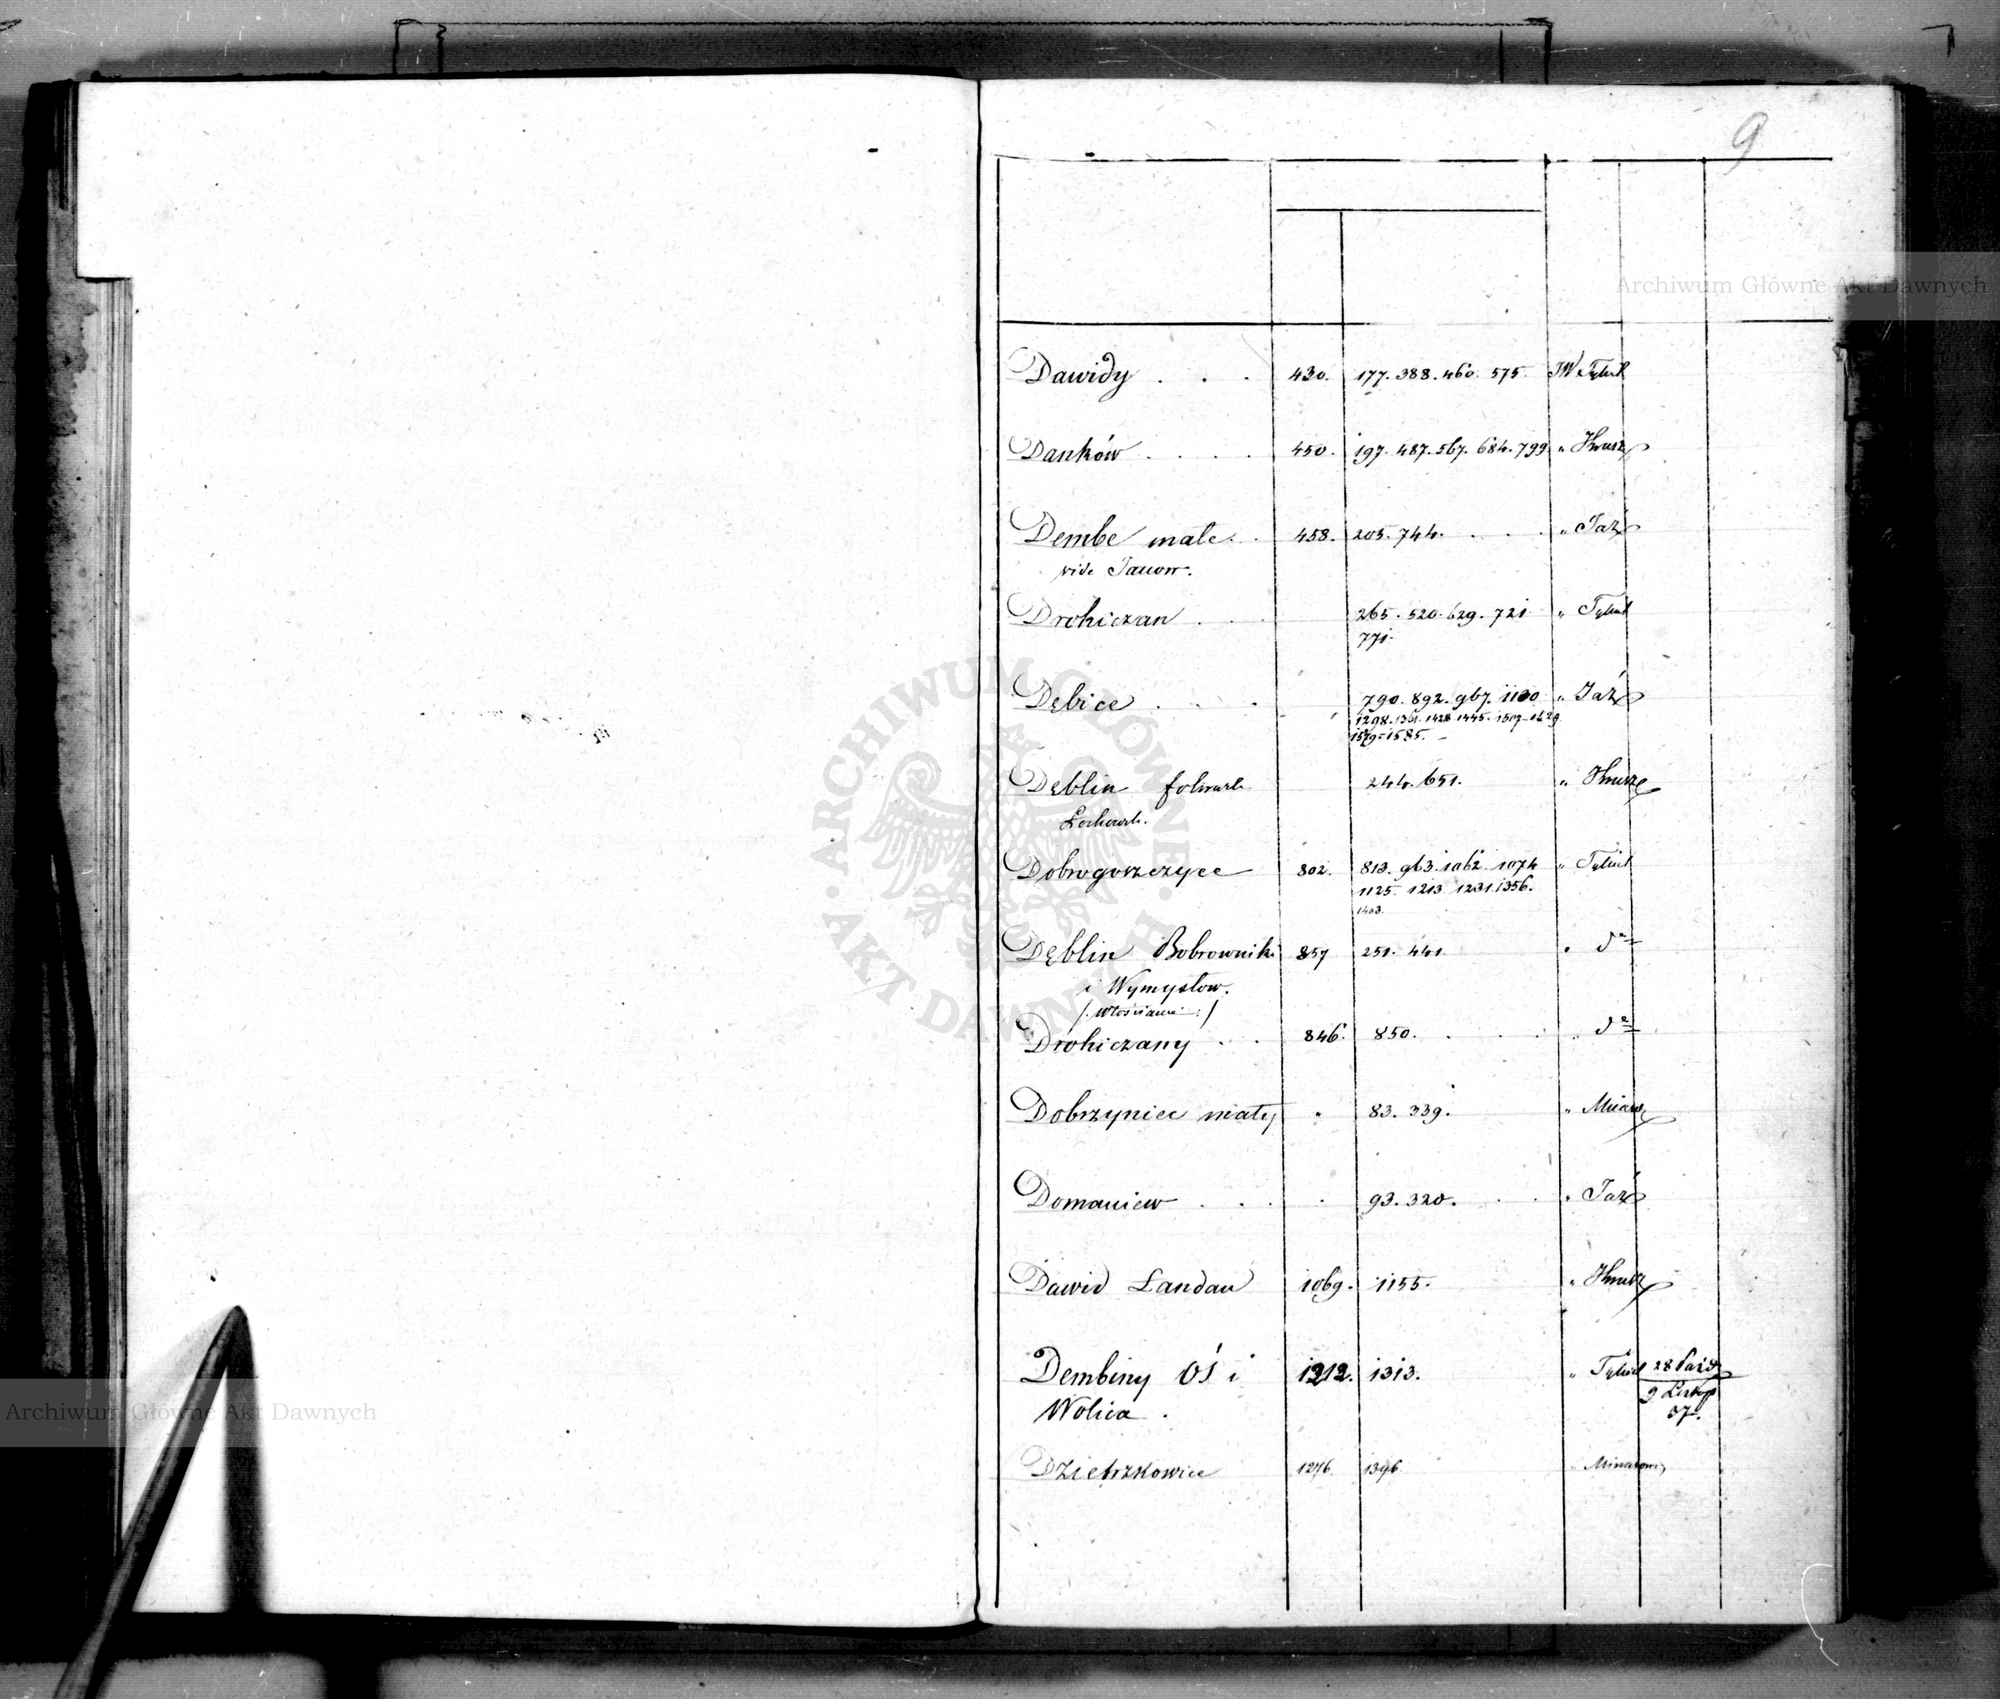 9
Archiwum Główne Akt Dawnych
Dawidy . . . 430. 177. 388. 460. 575. JW Tykiel
Danków . . . . 450. 197. 487. 567. 684. 799 " Hrusz
Dembe małe . . 458. 205. 744. . . . " Jaź
vide Janow.
Drohiczan . . . 265. 520. 629. 721 " Tykiel
771.
Dębice . . . 790. 892. 967. 1130 " Jaź
1298. 1361. 1428 1445. 1507
1579 1585.
Dęblin folwark 244. 651. " Hrusz
Dobrogorzczyce 802. 813. 963. 1062. 1074 " Tykiel
1125. 1213 1231. 1356.
1403.
Dęblin Bobrowniki 857 251. 441. "
i Wymysłow.
/: włościanie :/
Drohiczany . . 846. 850. . . . "
Dobrzyniec mały " 83. 339. "
Domaniew . . . . 93. 320. . . " Jaź
Dawid Landau 1069. 1155. " Hrusz
Dembiny Oś i 1212. 1313. " Tykiel 28 Paźdz
Wolica . 9 Listop
57.
Dzietrzkowice 1276. 1396.
Archiwum Główne Akt Dawnych
ARCHIWUM GŁÓWNE · AKT DAWNYCH ·